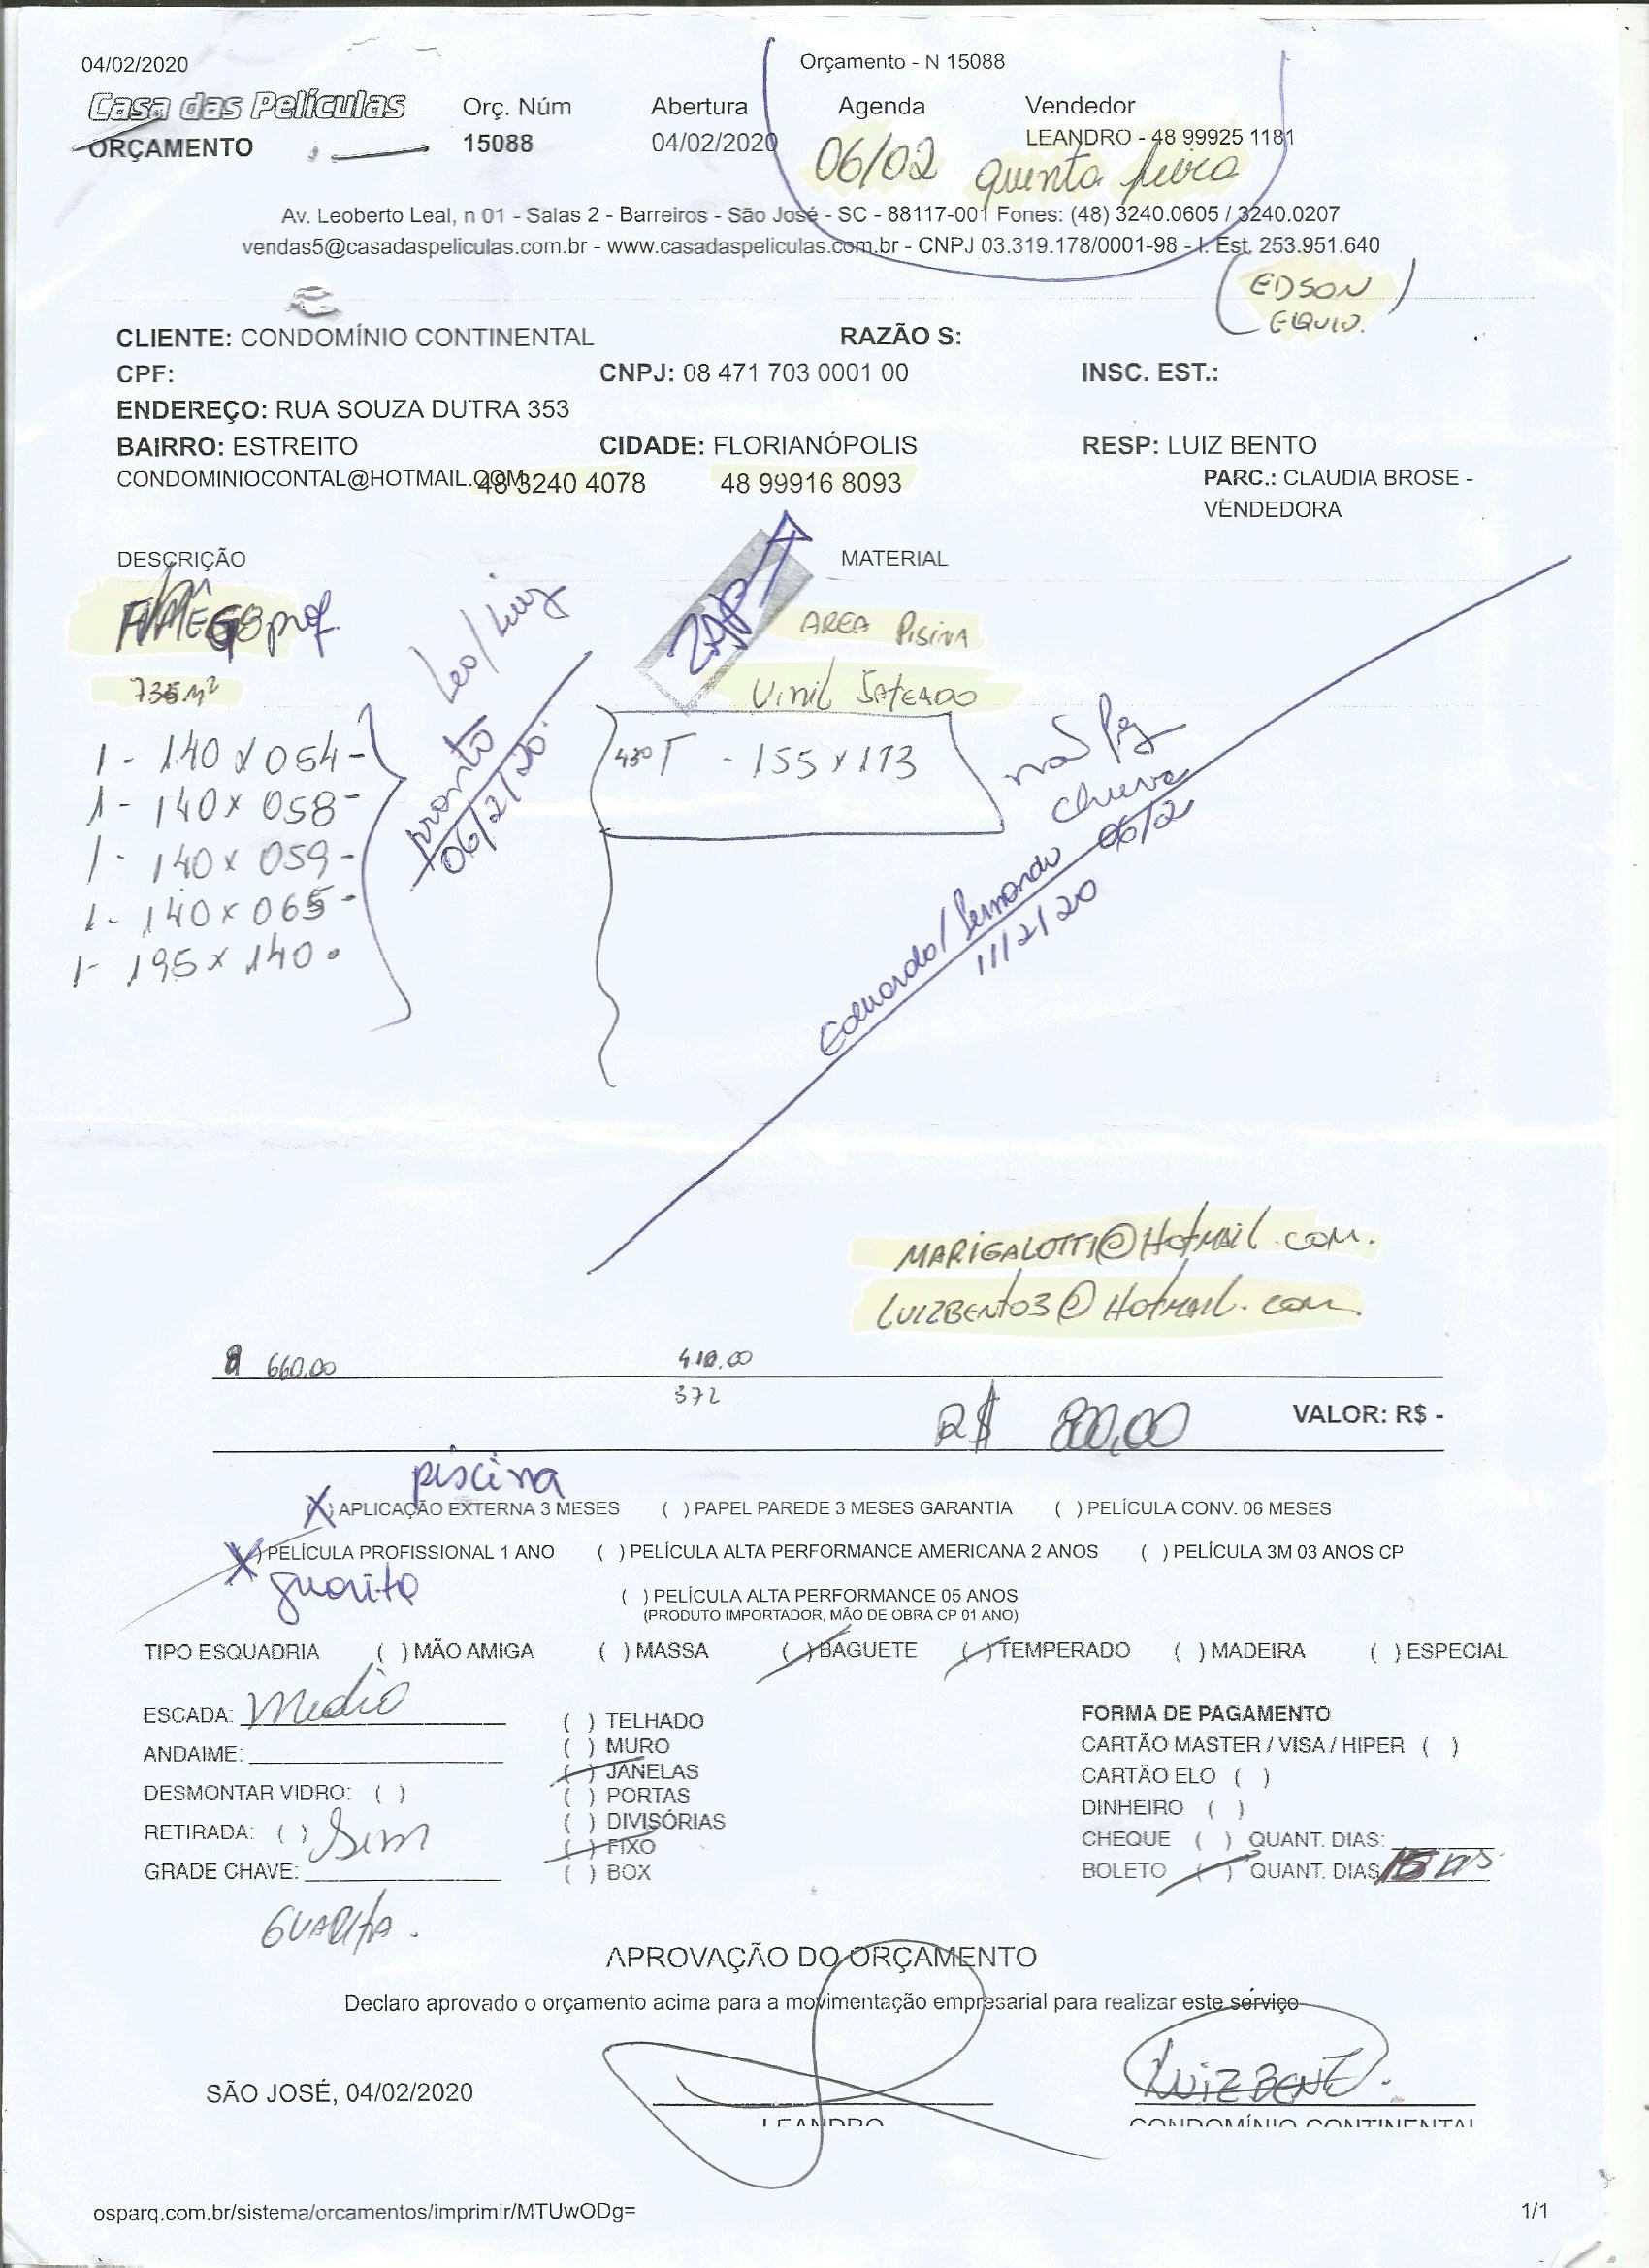 04/02/2020
Orçamento - N 15088
Casa das Películas
ORÇAMENTO
Orç. Núm
15088
Abertura
04/02/2020
Agenda
06/02 quinta feira
Vendedor
LEANDRO - 48 99925 1181
Av. Leoberto Leal, n 01 - Salas 2 - Barreiros - São José - SC - 88117-001 Fones: (48) 3240.0605 / 3240.0207
vendas5@casadaspeliculas.com.br - www.casadaspeliculas.com.br - CNPJ 03.319.178/0001-98 - I. Est. 253.951.640
(EDSON)
CLIENTE: CONDOMÍNIO CONTINENTAL RAZÃO S:
CPF: CNPJ: 08 471 703 0001 00 INSC. EST.:
ENDEREÇO: RUA SOUZA DUTRA 353
BAIRRO: ESTREITO CIDADE: FLORIANÓPOLIS RESP: LUIZ BENTO
CONDOMINIOCONTAL@HOTMAIL.COM 48 3240 4078 48 99916 8093 PARC.: CLAUDIA BROSE -
VENDEDORA
DESCRIÇÃO MATERIAL
prof.
ZAP
AREA PISINA
VINIL JATEADO
Leo/Luiz
pronto
06/2/20
1 - 140 x 054 -
1 - 140 x 058 -
1 - 140 x 059 -
1 - 140 x 065 -
1 - 195 x 140
- 155 x 173
chuva
06/2
Eduardo/Fernando
11/2/20
MARIGALOTTI@HOTMAIL.COM.
LUIZBENTO3@HOTMAIL.COM
660,00 410.00
372
R$ 800,00 VALOR: R$ -
piscina
(X) APLICAÇÃO EXTERNA 3 MESES ( ) PAPEL PAREDE 3 MESES GARANTIA ( ) PELÍCULA CONV. 06 MESES
(X) PELÍCULA PROFISSIONAL 1 ANO ( ) PELÍCULA ALTA PERFORMANCE AMERICANA 2 ANOS ( ) PELÍCULA 3M 03 ANOS CP
guarita
( ) PELÍCULA ALTA PERFORMANCE 05 ANOS
(PRODUTO IMPORTADOR, MÃO DE OBRA CP 01 ANO)
TIPO ESQUADRIA ( ) MÃO AMIGA ( ) MASSA (/) BAGUETE (/) TEMPERADO ( ) MADEIRA ( ) ESPECIAL
ESCADA: Medio
ANDAIME:
DESMONTAR VIDRO: ( )
RETIRADA: ( ) Sim
GRADE CHAVE:
GUARITA.
( ) TELHADO
( ) MURO
(/) JANELAS
( ) PORTAS
( ) DIVISÓRIAS
(/) FIXO
( ) BOX
FORMA DE PAGAMENTO
CARTÃO MASTER / VISA / HIPER ( )
CARTÃO ELO ( )
DINHEIRO ( )
CHEQUE ( ) QUANT. DIAS:
BOLETO (/) QUANT. DIAS 15
APROVAÇÃO DO ORÇAMENTO
Declaro aprovado o orçamento acima para a movimentação empresarial para realizar este serviço
LUIZ BENTO
SÃO JOSÉ, 04/02/2020
LEANDRO CONDOMÍNIO CONTINENTAL
osparq.com.br/sistema/orcamentos/imprimir/MTUwODg= 1/1